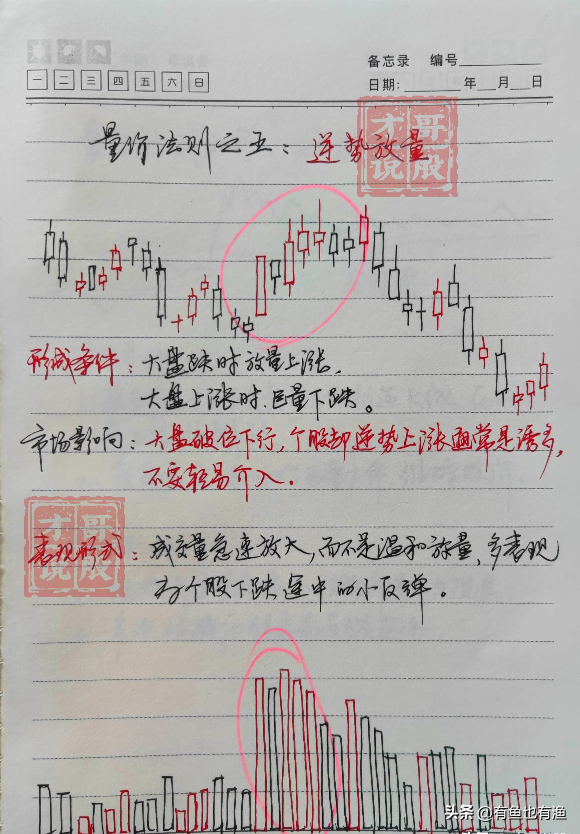 备忘录 编号
一 二 三 四 五 六 日
日期: 年 月 日
量价法则之五：逆势放量
才哥说股
形成条件：大盘跌时放量上涨，
大盘上涨时巨量下跌。
市场影响：大盘破位下行，个股却逆势上涨通常是诱多，
不要轻易介入。
才哥说股
表现形式：成交量急速放大，而不是温和放量，多表现
为个股下跌途中的小反弹。
头条 @有鱼也有渔